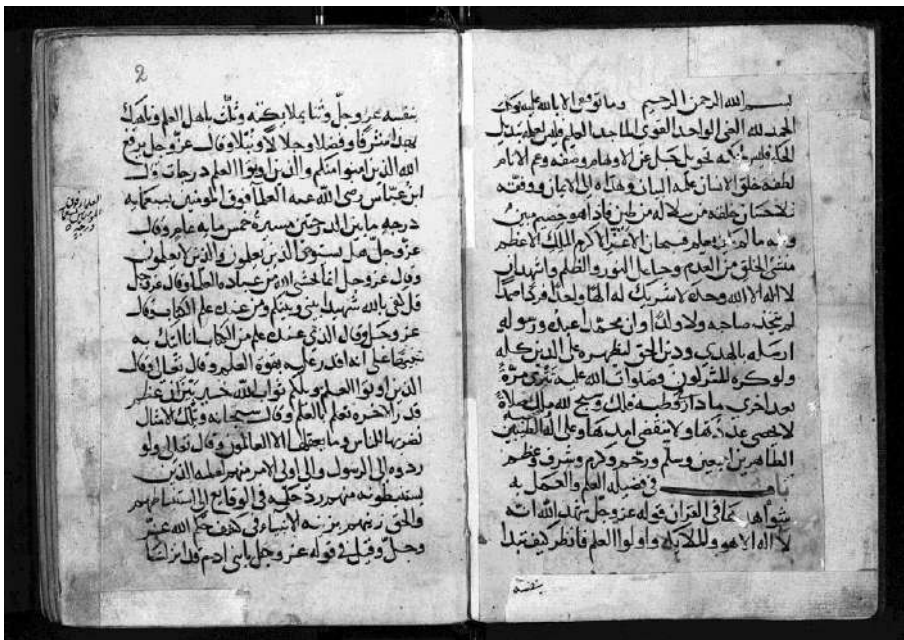 بسم الله الرحمن الرحيم وما توفيقي الا بالله عليه توكلت
الحمد لله الغني الواحد القوي الماجد العليم فليس لعلمه تبديل
الحكيم فليس تحويل جل عن الاوهام وصفه وعم الانام
لطفه خلق الانسان علمه البيان وهداه الى الايمان ووفقه
للاحسان خلقه من سلاله من طين فاذا هو خصيم مبين
ما لم يكن يعلم فسبحان الاعز الاكرم الملك الاعظم
منشئ الخلق من العدم وجاعل النور والظلم واشهد ان
لا اله الا الله وحده لا شريك له الها واحدا فردا صمدا
لم يتخذ صاحبه ولا ولدا وان محمدا عبده ورسوله
ارسله بالهدي ودين الحق ليظهره على الدين كله
ولو كره المشركون وصلوات الله عليه تترى مرة
بعد اخري ما دار قطب فلك وسبح لله ملك صلاة
لا يحصى عددها ولا ينقضي امدها وعلى اله الطيبين
الطاهرين اجمعين وسلم ورحم وكرم وشرف وعظم
باب في فضيله العلم والعمل به
شواهدها في القران قوله عز وجل شهد الله انه
لا اله الا هو والملايكه واولوا العلم فانظر كيف بدا
بنفسه
2
بنفسه عز وجل وثنا بملايكته وثلث باهل العلم وناهيك
بهذا شرفا وفضلا وجلالا ونبلا وقال عز وجل يرفع
الله الذين امنوا منكم والذين اوتوا العلم درجات قال
ابن عباس رضي الله عنه العلما فوق المومنين بسبعمايه
درجه ما بين الدرجتين مسيرة خمس مايه عام وقال
عز وجل هل يستوي الذين يعلمون والذين لا يعلمون
وقال عز وجل انما يخشى الله من عباده العلما وقال عز وجل
قل كفى بالله شهيدا بيني وبينكم ومن عنده علم الكتاب وقال
عز وجل وقال الذي عنده علم من الكتاب انا اتيك به
تنبيها على انه اقدر عليه بقوة العلم وقال تعالى وقال
الذين اوتوا العلم ويلكم ثواب الله خير بين ان عظم
قدر الاخره تعلم بالعلم وقال سبحانه وتلك الامثال
نضربها للناس وما يعقلها الا العالمون وقال تعالى ولو
ردوه الى الرسول والى اولى الامر منهم لعلمه الذين
يستنبطونه منهم رد حكمه في الوقايع الى استنباطهم
والحق رتبتهم برتبه الانبياء في كشف حكم الله عز
وجل وقيل في قوله عز وجل يا بني ادم قد انزلنا